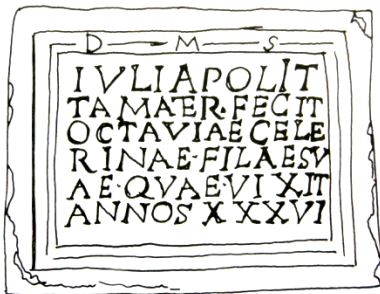 D M S
IVLIAPOLIT
TAMATER·FECIT
OCTAVIAECELE
RINAE·FILAESV
AE·QVAE·VIXIT
ANNOS XXXVI